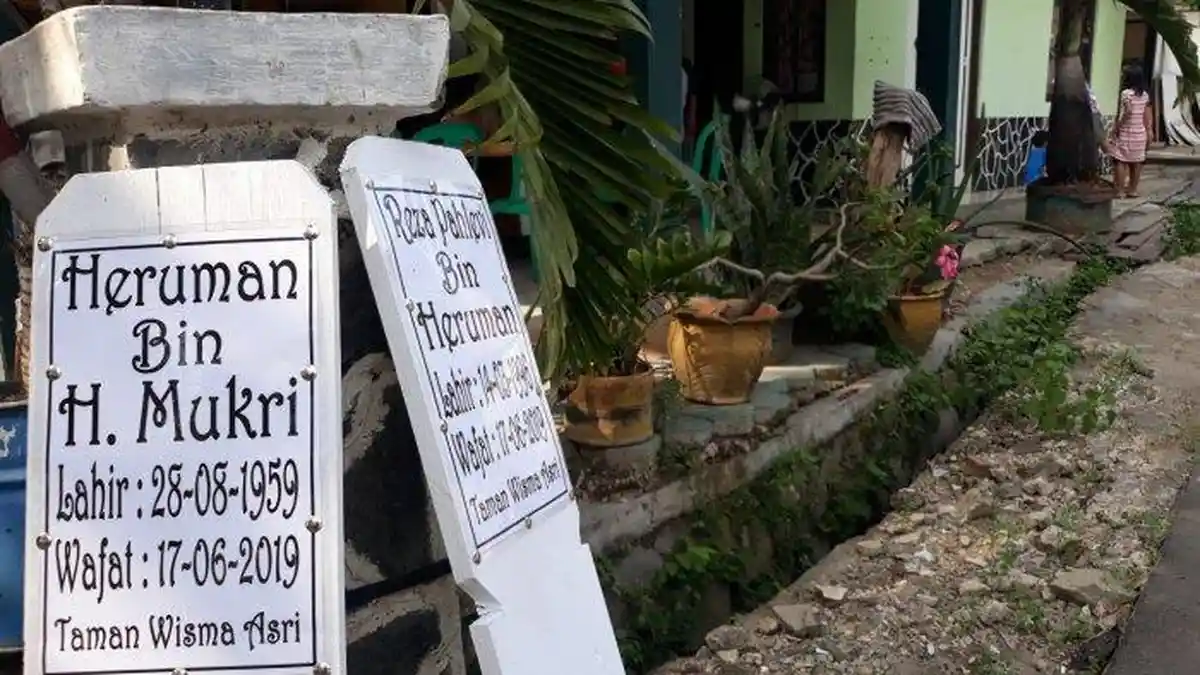 Heruman
Bin
H. Mukri
Lahir : 28-08-1959
Wafat : 17-06-2019
Taman Wisma Asri
Reza Pahlevi
Bin
Heruman
Lahir :
Wafat : 17-06-2019
Taman Wisma Asri